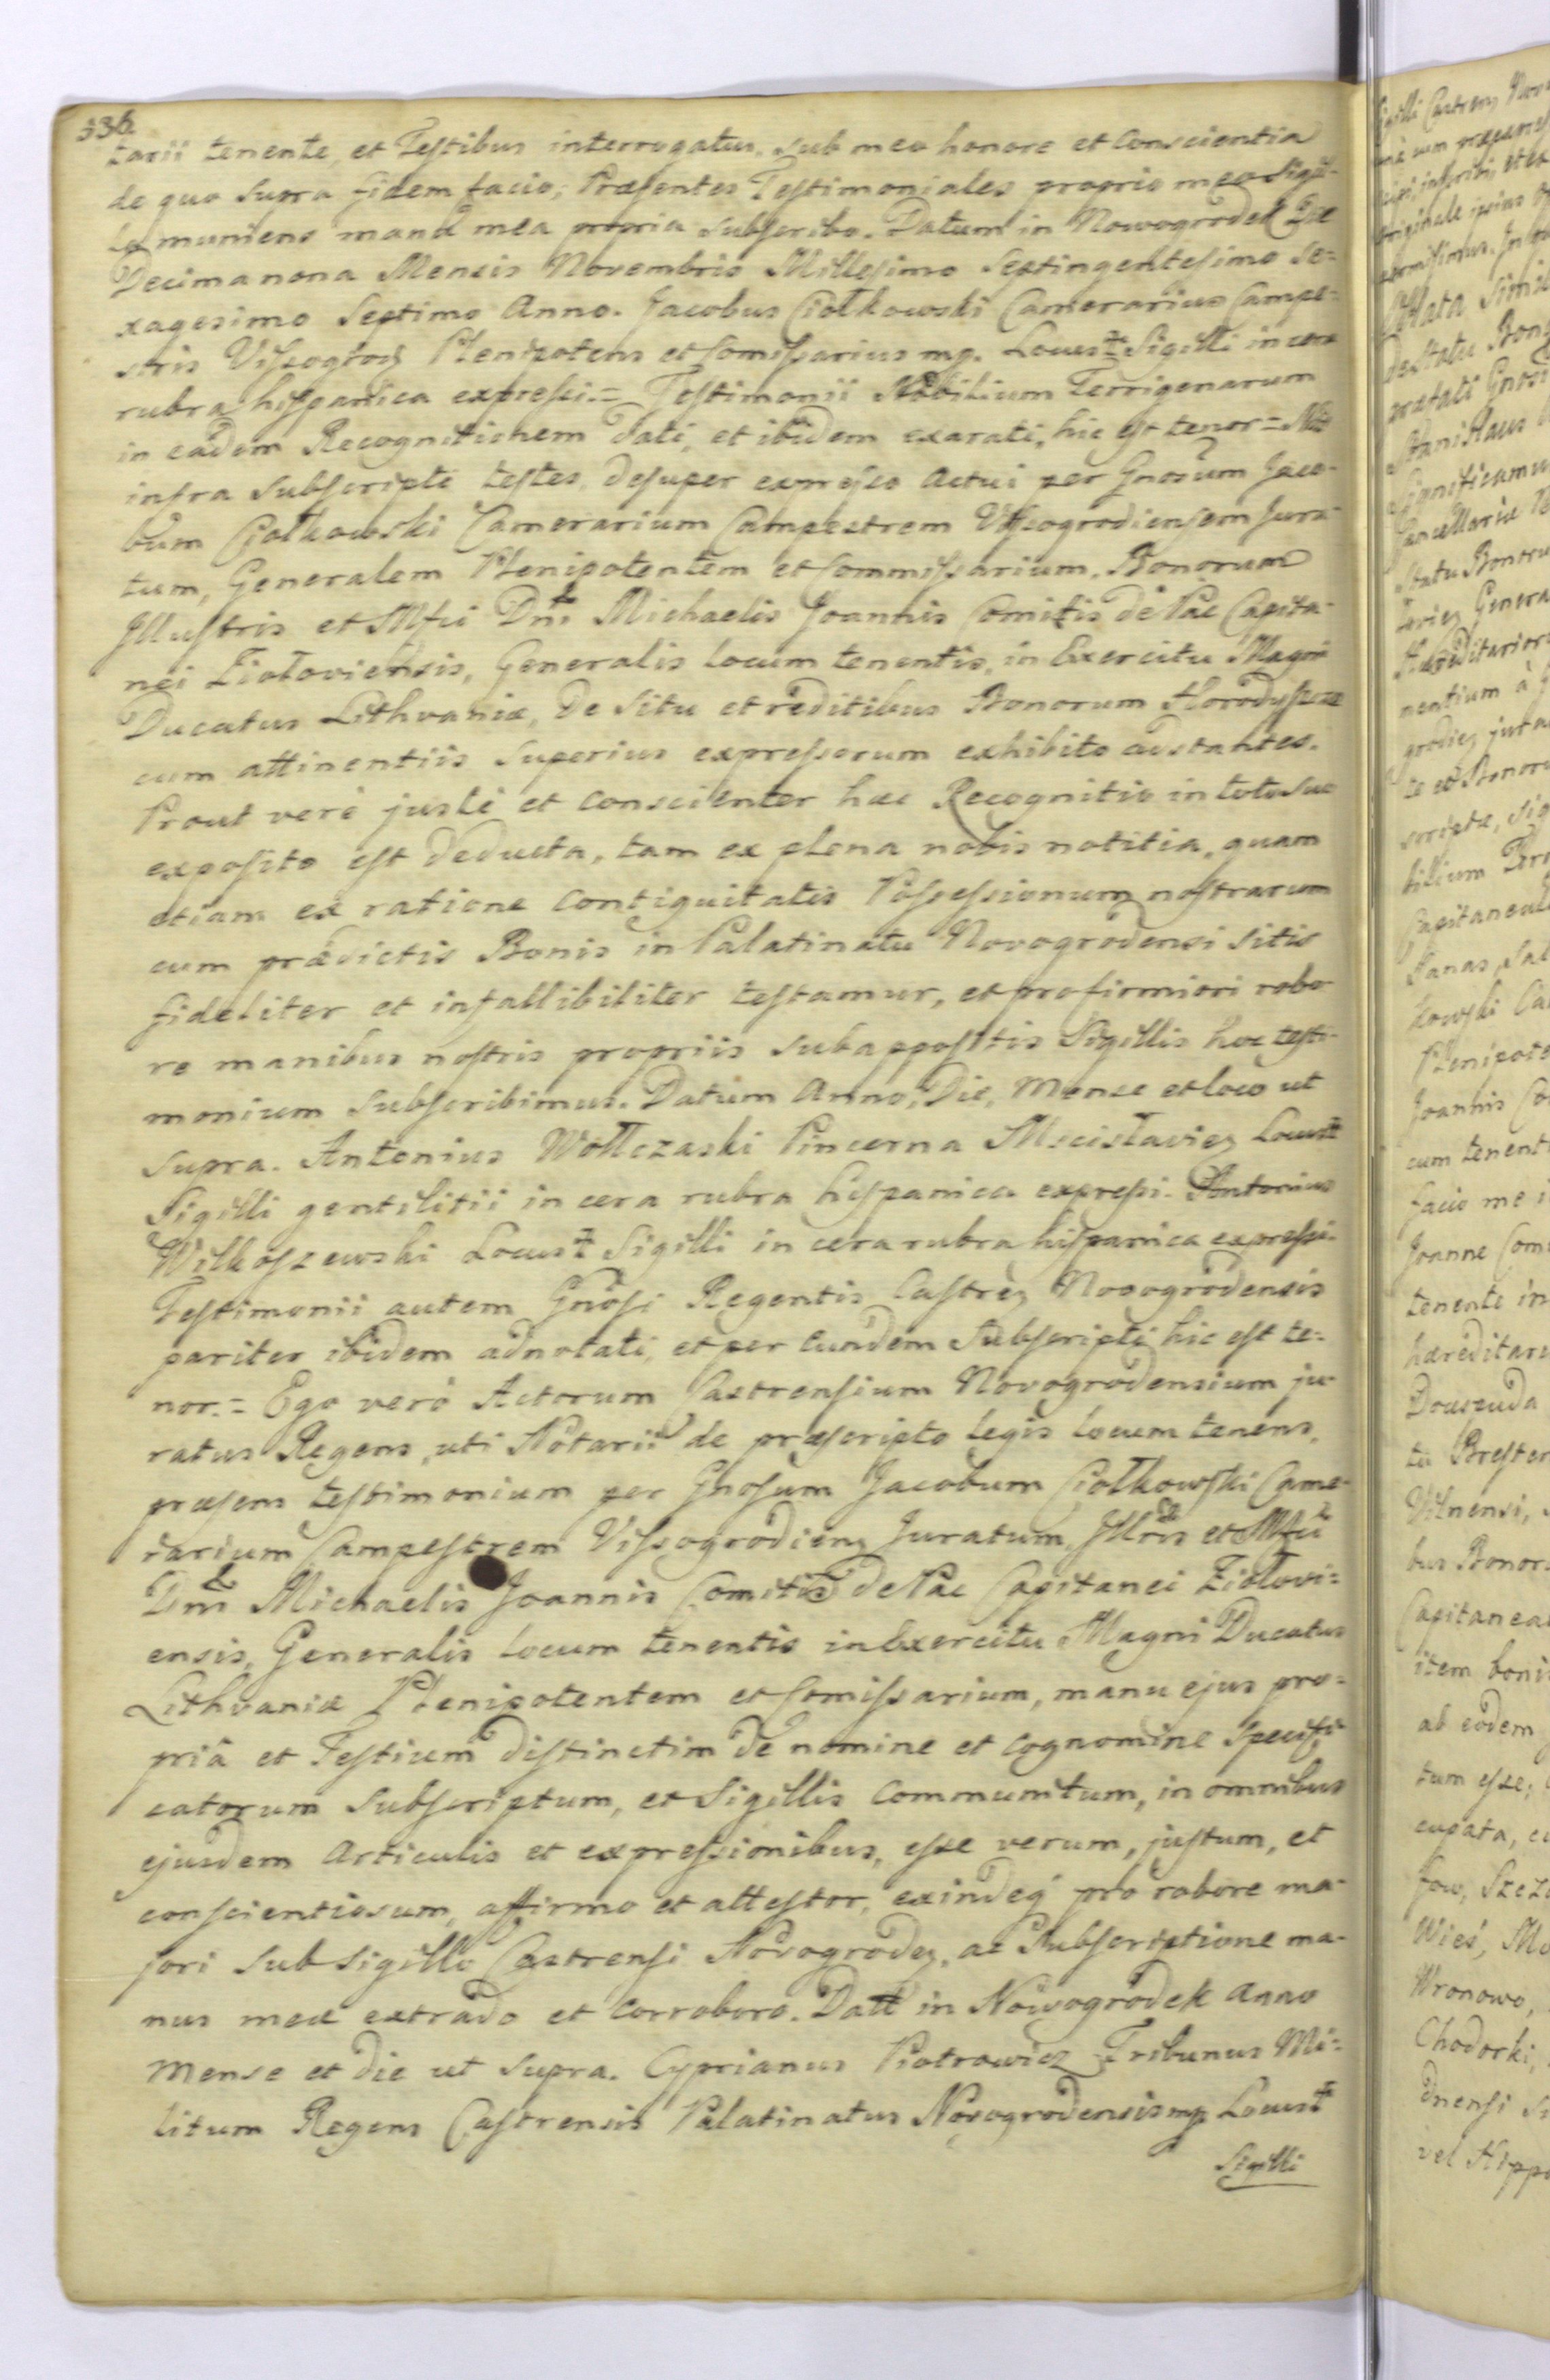 336
tarii tenente, et Testibus interrogatus, sub meo honore et Conscientia
de quo Supra fidem facio, Præsentes Testimoniales proprio meo Sigil-
lo muniens manu mea propria subscribo. Datum in Nowogrodek Die
Decima nona Mensis Novembris Millesimo Septingentesimo Se=
xagesimo Septimo Anno. Jacobus Ciołkowski Camerarius Campe-
stris Vissogrod Plenipotens et Comissarius mp. Locus Sigilli in cera
rubra hispanica expressi. = Testimonii Nobilium Terrigenarum
in eadem Recognitionem dati, et ibidem exarati, hic est tenor = Nos
infra Subscripti testes, desuper expresso Actui per Gnosum Jaco-
bum Ciołkowski Camerarium Campestrem Vissogrodiensem Jura-
tum, Generalem Plenipotentem et Commissarium, Bonorum
Illustris et Mfci Dni Michaelis Joannis Comitis de Pac Capita-
nei Ziołoviensis, Generalis locum tenentis, in Exercitu Magni
Ducatus Lithvaniæ, De Situ et reditibus Bonorum Horodyszcze
cum attinentiis superius expressorum exhibito adstantes.
Prout verè justè et conscienter hæc Recognitio in toto suo
exposito est deducta, tam ex plena nobis notitia, quam
etiam ex ratione Contiguitatis Possessionum nostrarum
cum prædictis Bonis in Palatinatu Novogrodensi Sitis
fideliter et infallibiliter testamur, et pro firmiori robo
re manibus nostris propriis subappositis Sigillis hoc testi-
monium subscribimus. Datum Anno, Die, Mense et loco ut
supra. Antonius Wołłczaski Pincerna Mscislaviez Locus
Sigilli gentilitii in cera rubra hispanica expressi. Antonius
Wilkoszewski Locus Sigilli in cera rubra hispanica expressi.
Testimonii autem Gnosi Regentis Castrez Novogrodensis
pariter ibidem adnotati, et per eundem Subscripti hic est te-
nor. = Ego verò Actorum Castrensium Novogrodensium ju-
ratus Regens, uti Notarii de præscripto legis locum tenens,
præsens testimonium per Gnosum Jacobum Ciołkowski Came-
rarium Campestrem Vissogrodienz Juratum, Illris et Mfci
Dni Michaelis Joannis Comitis de Pac Capitanei Ziołovi=
ensis, Generalis locum tenentis in Exercitu Magni Ducatus
Lithvaniæ Plenipotentem et Comissarium, manu ejus pro=
priâ et Testium distinctim de nomine et cognomine Specifi-
catorum Subscriptum, et Sigillis Communitum, in omnibus
ejusdem Articulis et expressionibus, esse verum, justum, et
conscientiosum, affirmo et attestor, exindeq pro robore ma-
jori sub Sigillo Castrensi Novogrodez, ac Subscriptione ma-
nus meæ extrado et corroboro. Datt in Nowogrodek Anno
Mense et die ut supra. Cyprianus Piotrowicz Tribunus Mi=
litum Regens Castrensis Palatinatus Novogrodensis mp Locus
Sigilli